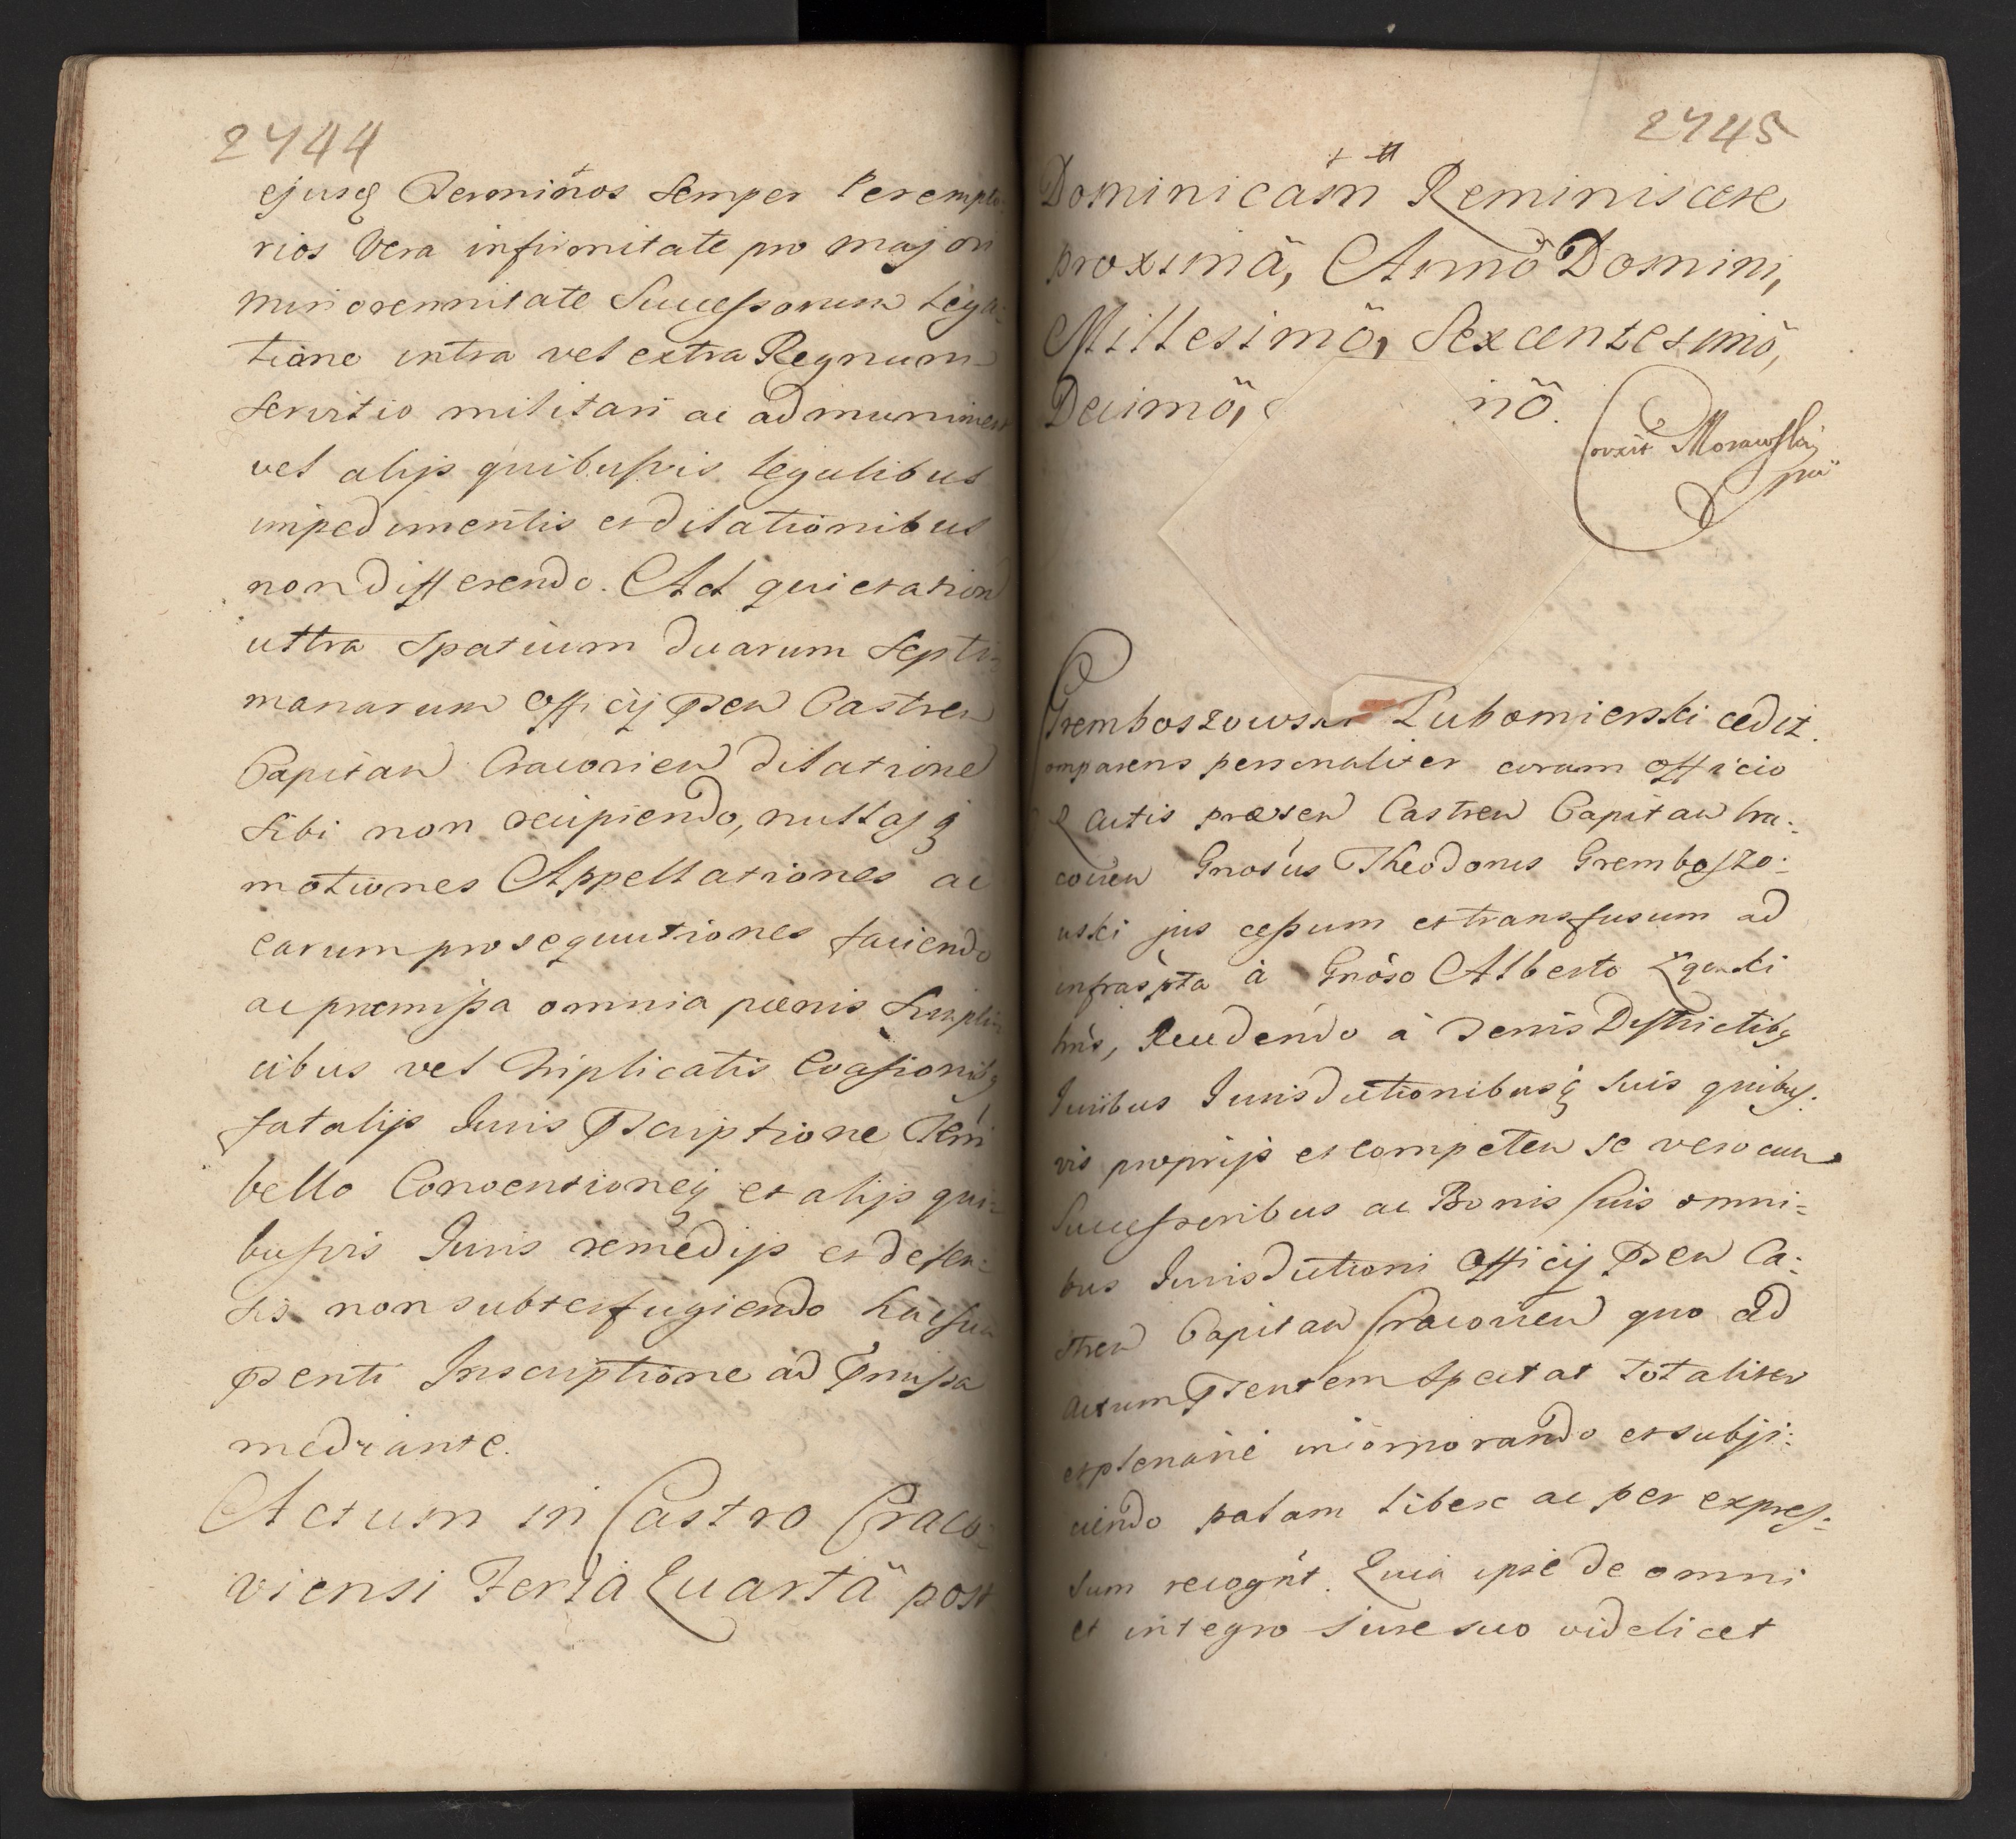 2744
ejusq Terminos semper Perempto:
rios Vera infirmitate pro majori
minorennitate Successorum Lega:
tione intra vel extra Regnum
servitio militari ac ad muniment
vel alijs quibusvis legalibus
impedimentis et dilationibus
non differendo. Ad quietation
ultra spatium duarum Septi
manarum Officij Psen Castren
Capitan Cracovien dilatione
sibi non recipiendo, nullasq
motiones Appellationes ac
earum prosequutiones faciendo
ac præmissa omnia pœnis
cibus vel triplicatis Evasionibq
fatalijs Juris Pscriptione Tŕri
bello Conventioneq et alijs qui=
busvis Juris remedijs et defen:
sis non subterfugiendo hac sua
Psenti Inscriptione ad Pmissa
mediante.
Actum in Castro Craco-
viensi Feria Quarta post
2745
Dominicam Reminiscere
proximä, Annö Domini,
Millesimö, Sexcentesimö,
Decimö, nö.
Correxit Morawski
mp
Gremboszowski Lubomierski cedit.
Comparens personaliter coram Officio
& Actis præsen Castren Capitan Cra:
covien Gnosus Theodorus Gremboszo:
wski jus cessum et transfusum ad
infraspta à Gnoso Alberto
hńs, Recedendo à Terris Districtibq
Juribus Jurisdictionibusq suis quibus:
vis proprijs et competen se vero cum
Successoribus ac Bonis suis omni=
bus Jurisdictioni Officij Psen Ca:
stren Capitan Cracovien quo ad
actum Psentem spectat totaliter
et plenarie incorporando et subji:
ciendo palam libere ac per expres:
sum recognt. Quia ipse de omni
et integro jure suo videlicet